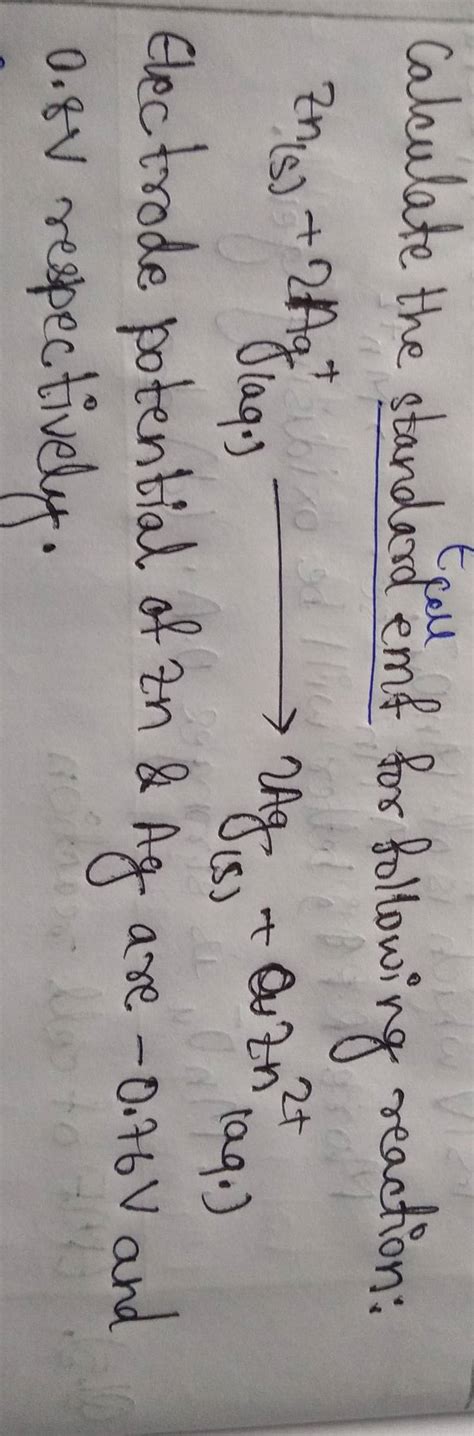 Calculate the standard emf for following reaction:
E cell
Zn(s) + 2Ag⁺(aq.) ⟶ 2Ag(s) + Zn²⁺(aq.)
Electrode potential of Zn & Ag are -0.76V and
0.8V respectively.